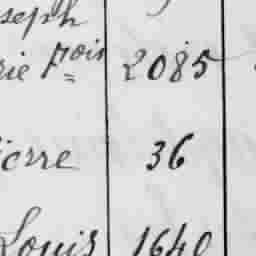 seph
rie fois 2085
ierre 36
Louis 1640